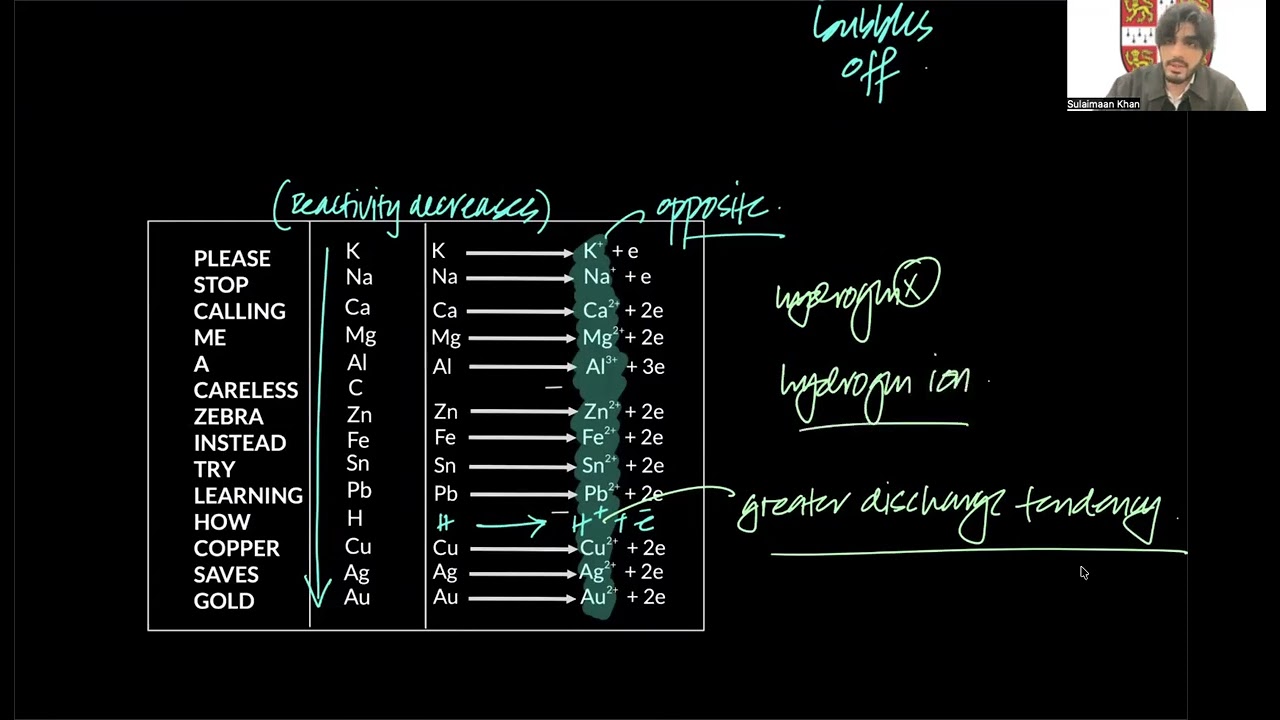 bubbles
off.
Sulaimaan Khan
(Reactivity decreases)
opposite.
PLEASE K K → K⁺ + e
STOP Na Na → Na⁺ + e
CALLING Ca Ca → Ca²⁺ + 2e
ME Mg Mg → Mg²⁺ + 2e
A Al Al → Al³⁺ + 3e
CARELESS C –
ZEBRA Zn Zn → Zn²⁺ + 2e
INSTEAD Fe Fe → Fe²⁺ + 2e
TRY Sn Sn → Sn²⁺ + 2e
LEARNING Pb Pb → Pb²⁺ + 2e
HOW H – H → H⁺ + e⁻
COPPER Cu Cu → Cu²⁺ + 2e
SAVES Ag Ag → Ag²⁺ + 2e
GOLD Au Au → Au²⁺ + 2e
hydrogen X
hydrogen ion.
greater discharge tendency.